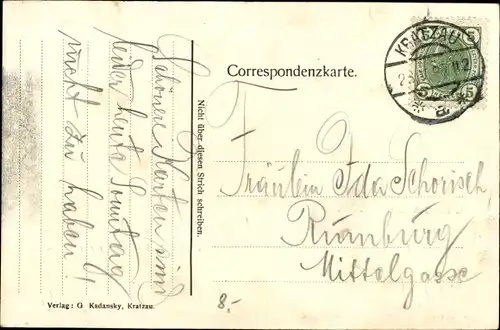 Correspondenzkarte.
KRATZAU
5
5
Schönere Karten sind
leider heute Sonntag
nicht zu haben!
Nicht über diesen Strich schreiben.
Fräulein Ida Schorisch
Rumburg
Mittelgasse
8,-
Verlag: G. Kadansky, Kratzau.